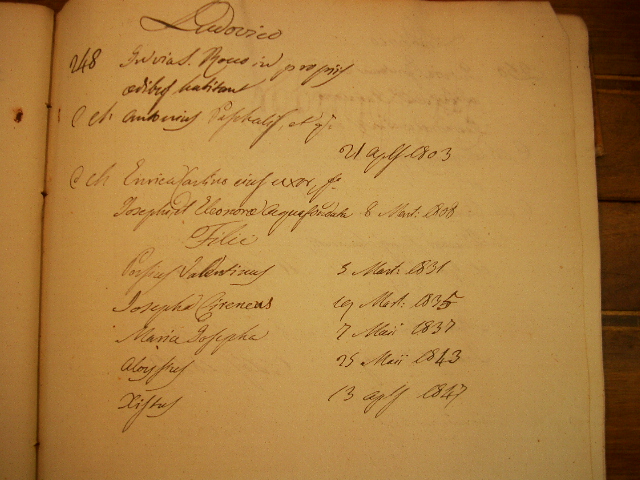 Ludovico
248 In via S. Rocco in propriis
ædibus habitant
C ch Antonius Paschalis, et
21 aplis 1803
C ch Enrica ejus uxor, f.
Joseph et Eleonora 8 Mart: 1808
Filii
Valentinus 5 Mart: 1831
Joseph Cireneus 19 Mart: 1835
Maria Josepha 7 Maii 1837
Aloysius 25 Maii 1843
Xistus 13 aplis 1847